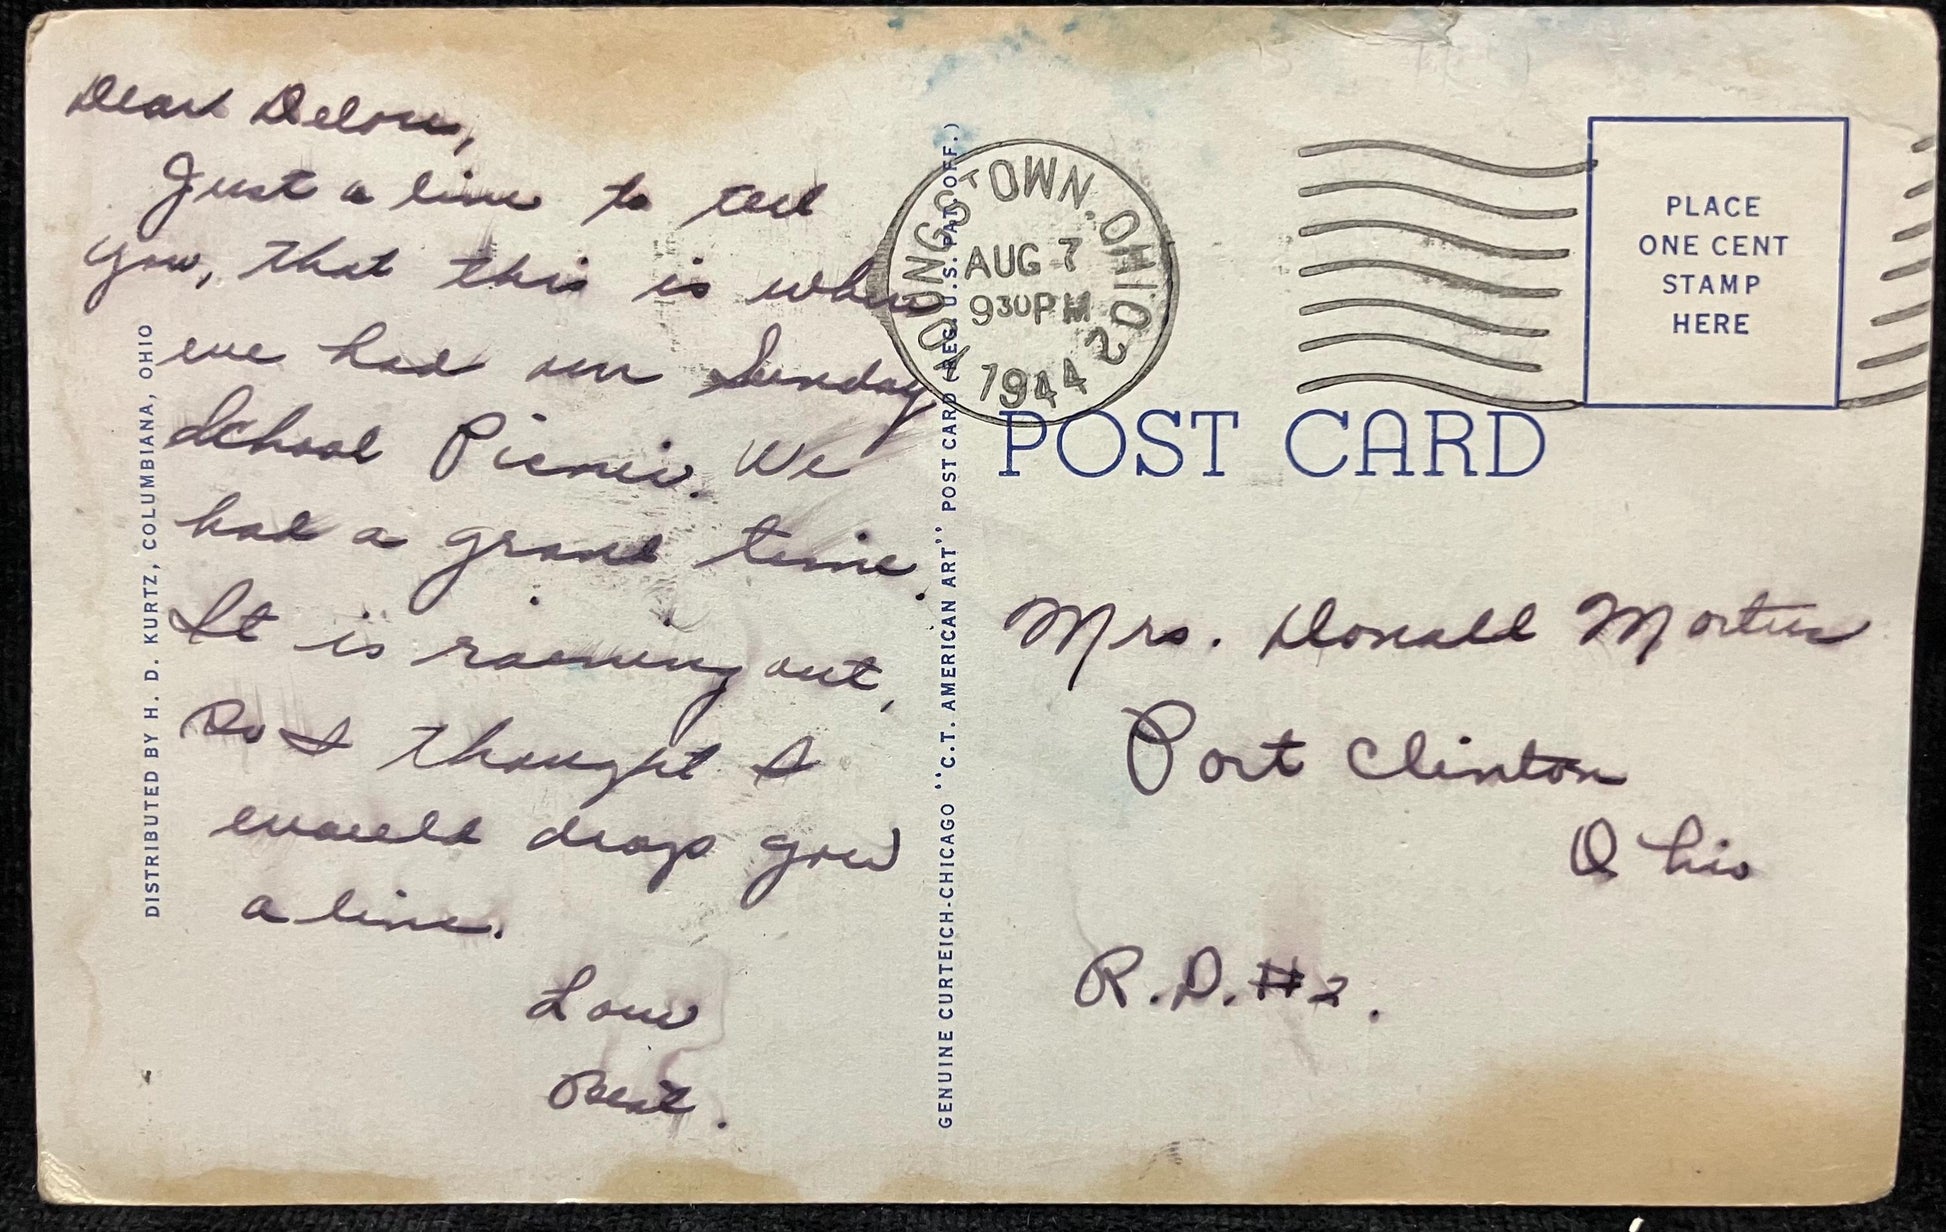 Dear Delores,
Just a line to tell
you, that this is where
we had our Sunday
School Picnic. We
had a grand time.
It is raining out,
So I thought I
would drop you
a line.
Love
DISTRIBUTED BY H. D. KURTZ, COLUMBIANA, OHIO
GENUINE CURTEICH-CHICAGO "C.T. AMERICAN ART" POST CARD (REG. U.S. PAT. OFF.)
YOUNGSTOWN, OHIO 2
AUG 7
930 PM
1944
PLACE
ONE CENT
STAMP
HERE
POST CARD
Mrs. Donald
Port Clinton
Ohio
R.D. #2.